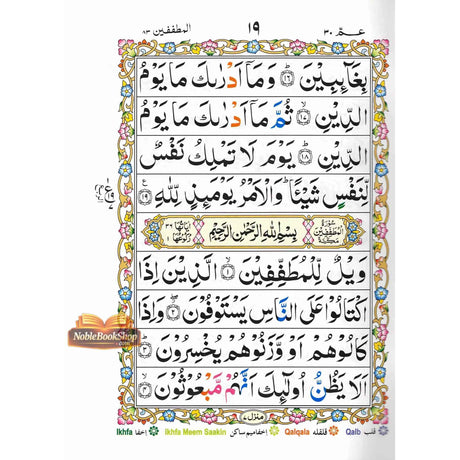 عمّ ٣٠ ١٩ المطففين ٨٣
بِغَآئِبِيْنَ ۝١٦ وَمَاۤ اَدْرٰىكَ مَا يَوْمُ
الدِّيْنِ ۝١٧ ثُمَّ مَاۤ اَدْرٰىكَ مَا يَوْمُ
الدِّيْنِ ۝١٨ يَوْمَ لَا تَمْلِكُ نَفْسٌ
لِّنَفْسٍ شَيْئًا ؕ وَالْاَمْرُ يَوْمَىِٕذٍ لِّلّٰهِ ۝١٩
سُوْرَةُ الْمُطَفِّفِيْنَ مَكِّيَّةٌ بِسْمِ اللّٰهِ الرَّحْمٰنِ الرَّحِيْمِ اٰيَاتُهَا ٣٦ رُكُوْعُهَا ١
وَيْلٌ لِّلْمُطَفِّفِيْنَ ۝١ الَّذِيْنَ اِذَا
اكْتَالُوْا عَلَى النَّاسِ يَسْتَوْفُوْنَ ۝٢ وَاِذَا
كَالُوْهُمْ اَوْ وَّزَنُوْهُمْ يُخْسِرُوْنَ ۝٣
اَلَا يَظُنُّ اُولٰٓىِٕكَ اَنَّهُمْ مَّبْعُوْثُوْنَ ۝٤
منزل ٧
NobleBookShop.com
Ikhfa اخفا Ikhfa Meem Saakin اخفا ميم ساكن Qalqala قلقله Qalb قلب